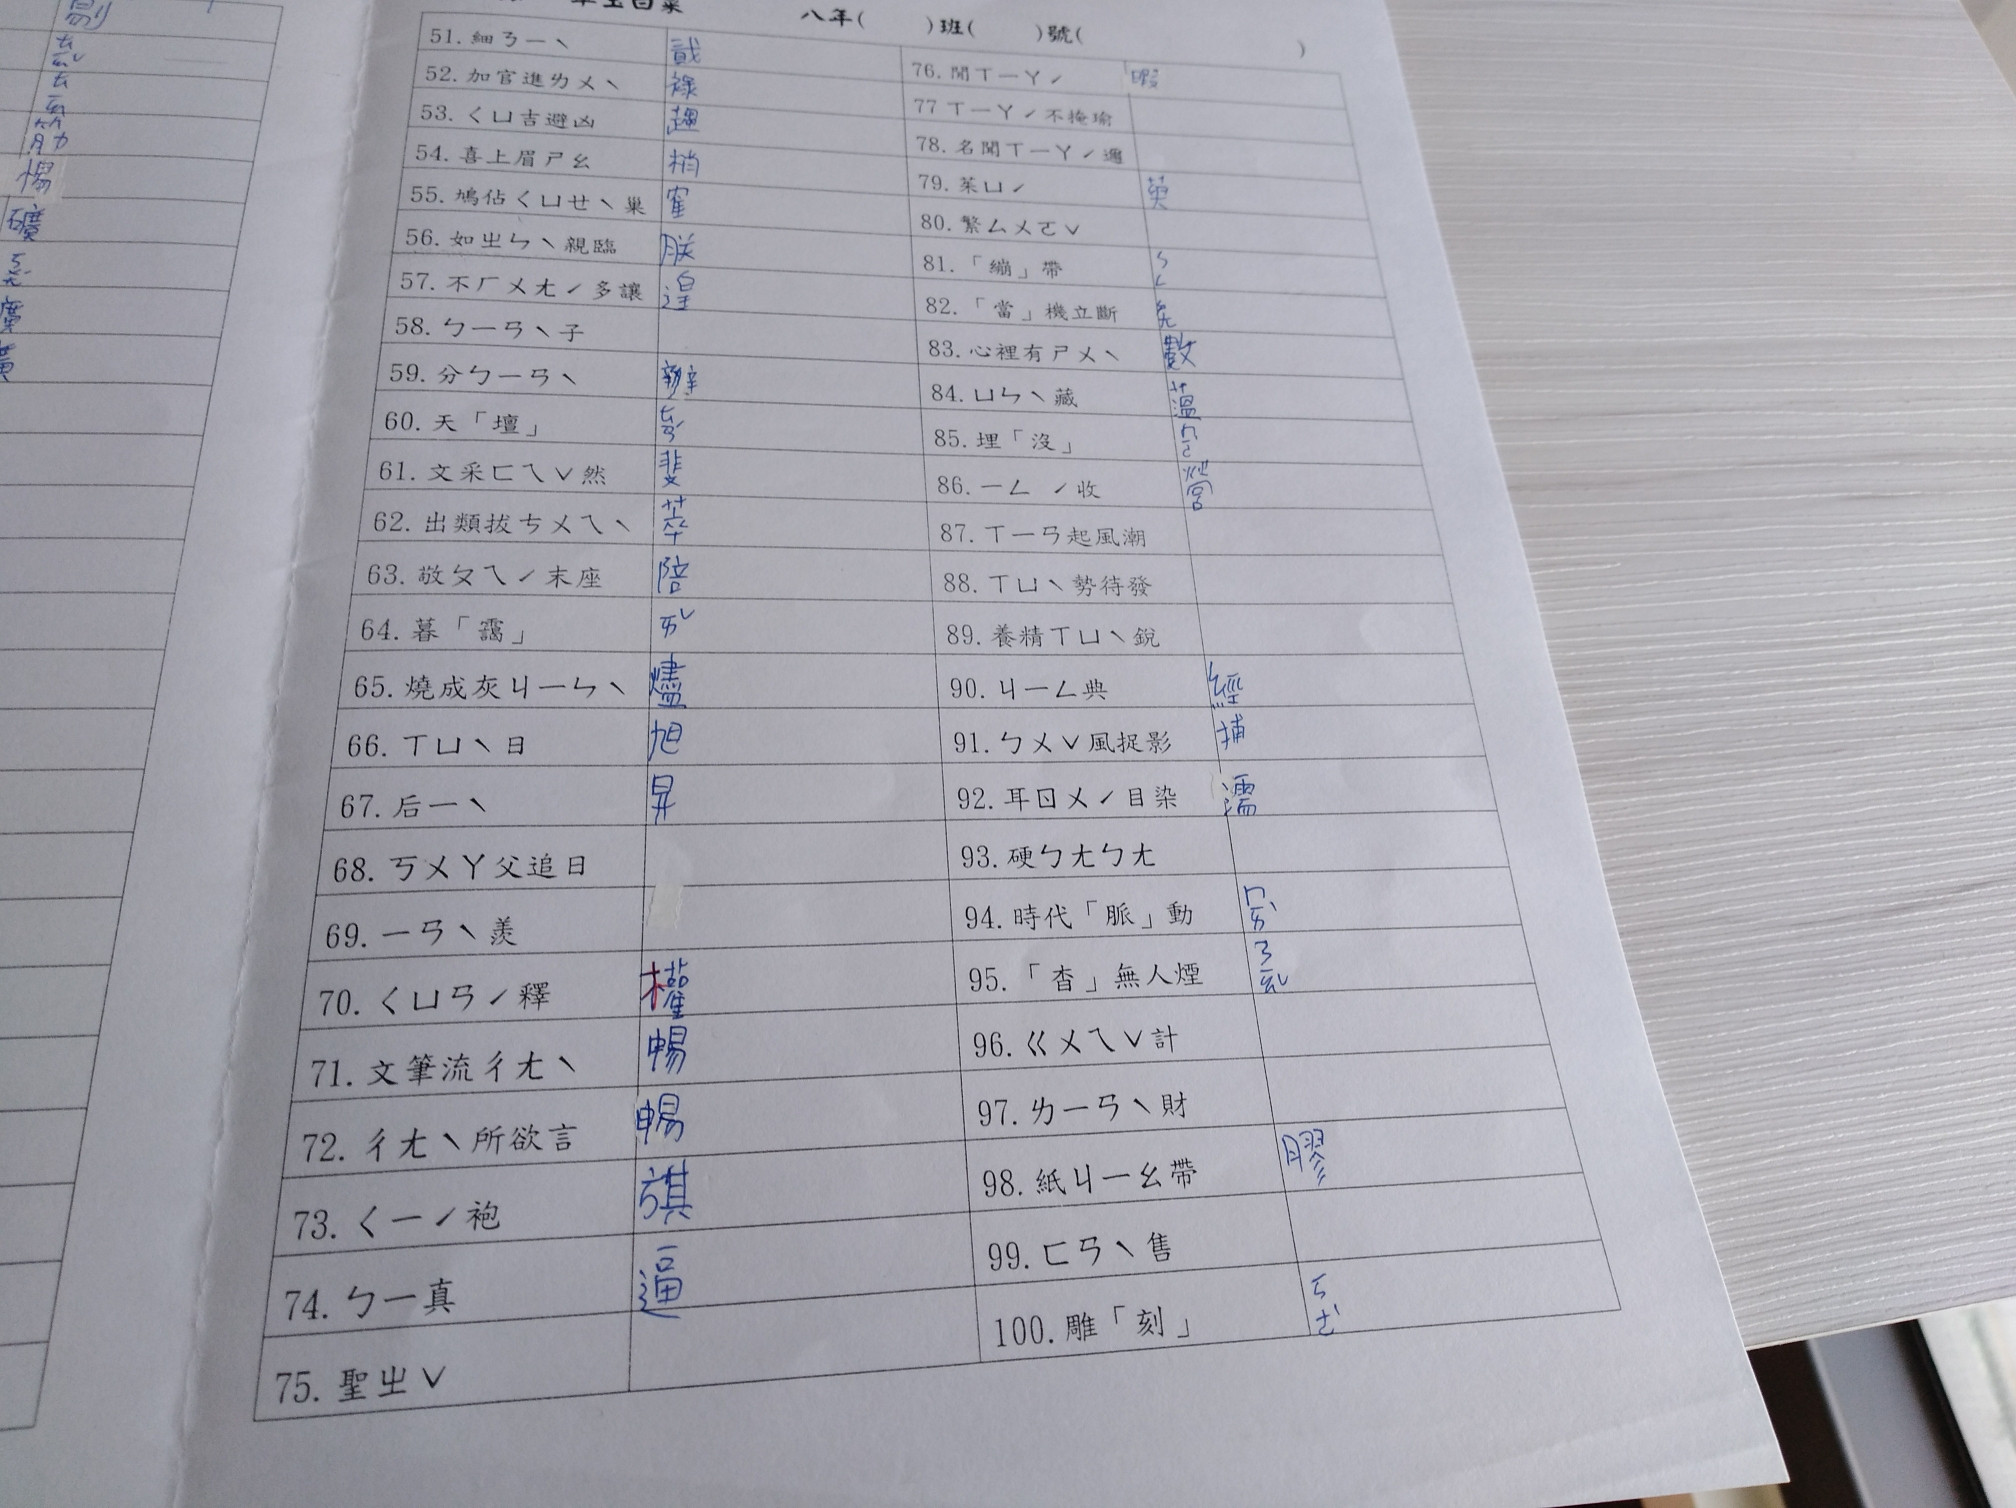 八年(　　)班(　　)號(　　　　　　)
51. 細ㄋㄧˋ
52. 加官進ㄌㄨˋ 祿
53. ㄑㄩ吉避凶 趨
54. 喜上眉ㄕㄠ 梢
55. 鳩佔ㄑㄩㄝˋ巢
56. 如ㄓㄣˋ親臨 朕
57. 不ㄏㄨㄤˊ多讓 遑
58. ㄅㄧㄢˋ子
59. 分ㄅㄧㄢˋ 辨
60. 天「壇」 ㄊㄢˊ
61. 文采ㄈㄟˇ然 斐
62. 出類拔ㄘㄨㄟˋ 萃
63. 敬ㄆㄟˊ末座 陪
64. 暮「靄」 ㄞˇ
65. 燒成灰ㄐㄧㄣˋ 燼
66. ㄒㄩˋ日 旭
67. 后ㄧˋ 昇
68. ㄎㄨㄚ父追日
69. ㄧㄢˋ羨
70. ㄑㄩㄢˊ釋 權
71. 文筆流ㄔㄤˋ 暢
72. ㄔㄤˋ所欲言 暢
73. ㄑㄧˊ袍 旗
74. ㄅㄧ真 逼
75. 聖ㄓˇ
76. 閒ㄒㄧㄚˊ 暇
77 ㄒㄧㄚˊ不掩瑜
78. 名聞ㄒㄧㄚˊ邇
79. 茱ㄩˊ 萸
80. 繁ㄙㄨㄛˇ
81. 「繃」帶 ㄅㄥ
82. 「當」機立斷 ㄉㄤ
83. 心裡有ㄕㄨˋ 數
84. ㄩㄣˋ藏 薀
85. 埋「沒」 ㄇㄛˋ
86. ㄧㄥˊ收 營
87. ㄒㄧㄢ起風潮
88. ㄒㄩˋ勢待發
89. 養精ㄒㄩˋ銳
90. ㄐㄧㄥ典 經
91. ㄅㄨˇ風捉影 捕
92. 耳ㄖㄨˊ目染 濡
93. 硬ㄅㄤㄅㄤ
94. 時代「脈」動 ㄇㄞˋ
95. 「杳」無人煙 ㄋㄧㄠˇ
96. ㄍㄨㄟˇ計
97. ㄌㄧㄢˋ財
98. 紙ㄐㄧㄠ帶 膠
99. ㄈㄢˋ售
100. 雕「刻」 ㄎㄜˋ
勵
筋
楊
礦
廣
黃